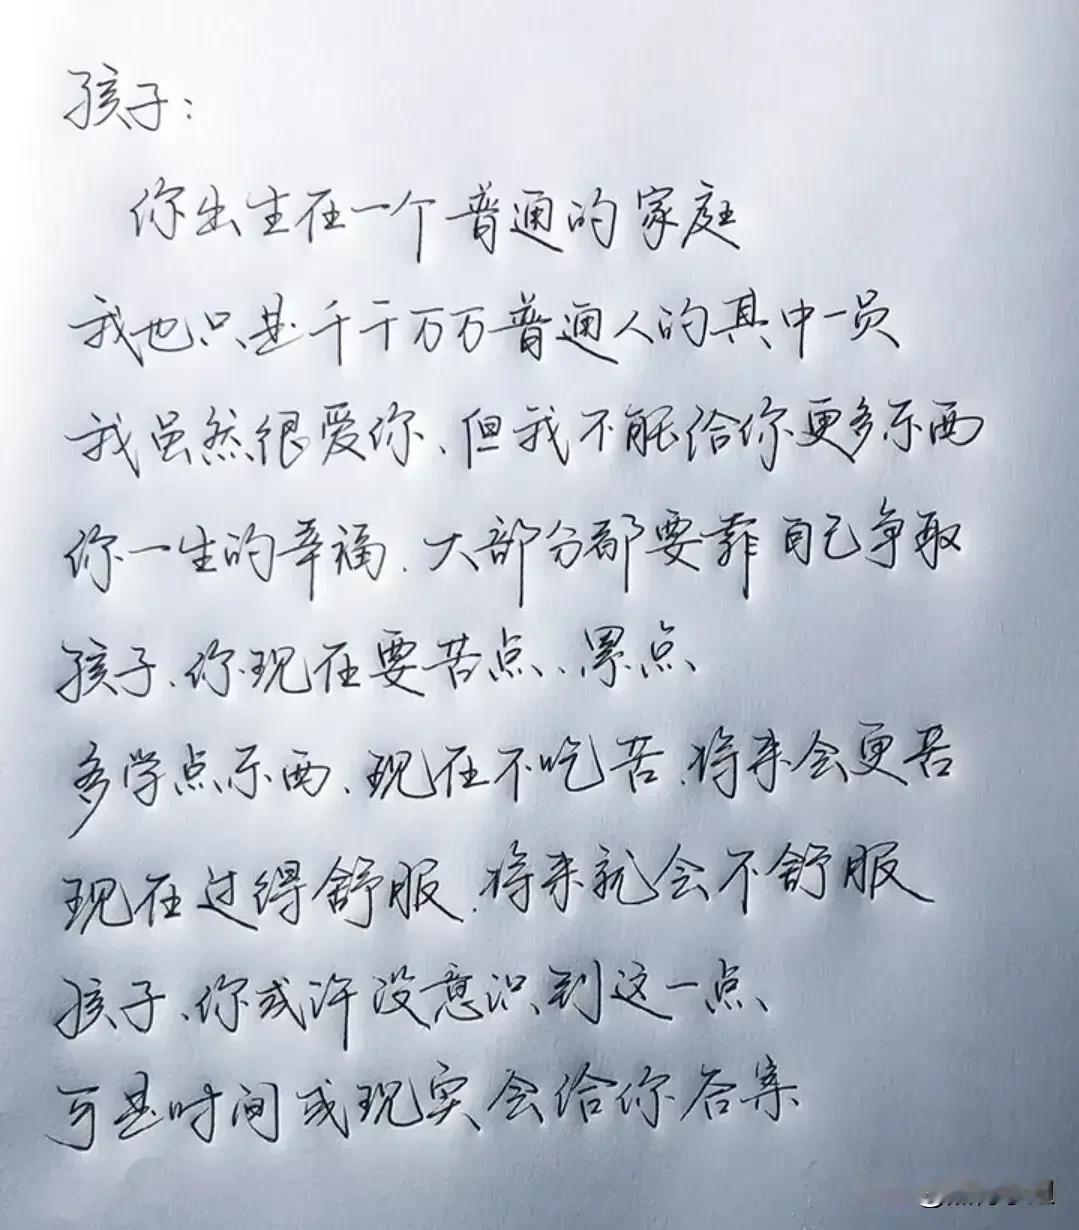 孩子：
你出生在一个普通的家庭
我也只是千千万万普通人的其中一员
我虽然很爱你、但我不能给你更多东西
你一生的幸福、大部分都要靠自己争取
孩子、你现在要苦点、累点、
多学点东西、现在不吃苦、将来会更苦
现在过得舒服、将来就会不舒服
孩子、你或许没意识到这一点、
可是时间或现实会给你答案